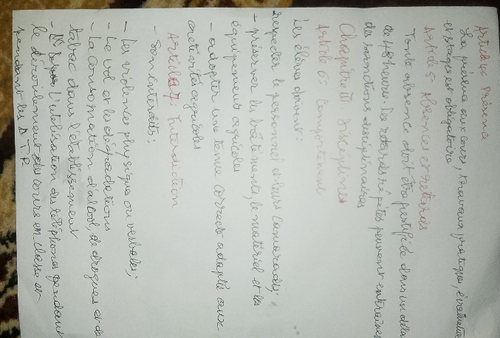 Article 4: Présence
La présence aux cours, travaux pratiques, évaluations
et stages est obligatoire
Article 5: Absences et retards
Toute absence doit être justifiée dans un délai
de 48 heure. Les retards répétés peuvent entrainer
des sanctions disciplinaires
Chapitre III Disciplines
Article 6: Comportement
Les élèves doivent:
respecter le personnel et leurs camarades;
- préserver les bâtiments, le matériel et les
équipements agricoles
- adopter une tenue correcte adaptée aux
activités agricoles
Article 7 Interdiction
- Sont interdits:
- Les violences physique ou verbales;
- Le vol et les dégradations
- La consommation d'alcool, de drogues et de
tabac dans l'établissement
- l'utilisation des téléphones pendant
le déroulement des cours en classe et
pendant les D T P.